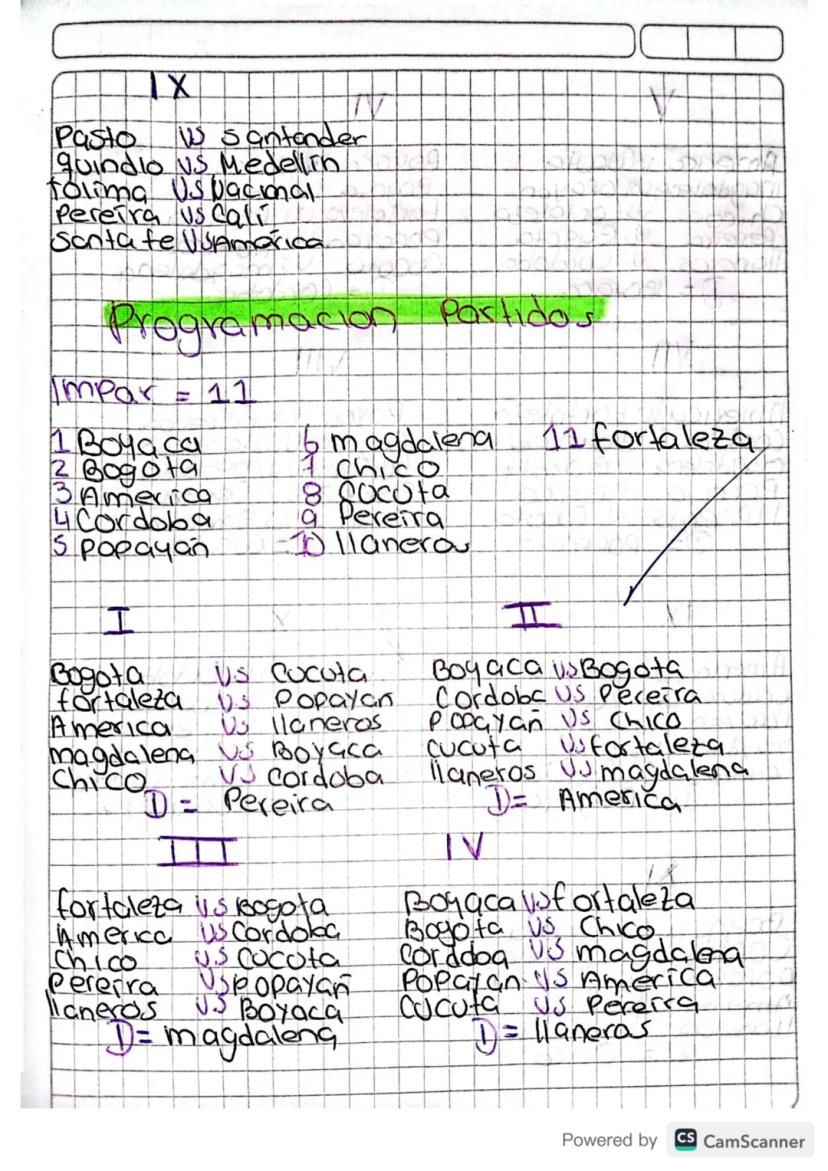 IX
Pasto VS Santander
quindio VS Medellin
tolima VS Nacional
Pereira VS Cali
Santa fe VS America
Programacion Partidos
Impar = 11
1 Boyaca 6 magdalena 11 fortaleza
2 Bogota 7 chico
3 America 8 cucuta
4 Cordoba 9 Pereira
5 popayan 10 llaneros
I II
Bogota VS Cucuta Boyaca VS Bogota
fortaleza VS Popayan Cordoba VS Pereira
America VS llaneros Popayan VS Chico
magdalena VS Boyaca cucuta VS fortaleza
Chico VS Cordoba llaneros VS magdalena
D = Pereira D = America
III IV
fortaleza VS Bogota Boyaca VS fortaleza
America VS Cordoba Bogota VS Chico
Chico VS Cucuta Cordoba VS magdalena
Pereira VS Popayan Popayan VS America
llaneros VS Boyaca Cucuta VS Pereira
D = magdalena D = llaneros
Powered by CS CamScanner